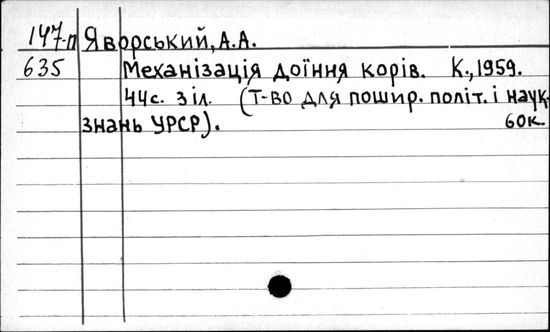 147-п Яворський, А.А.
635 Механізація доїння корів. К., 1959.
44с. з іл. (Т-во для пошир. політ. і наук.
знань УРСР).
60к.